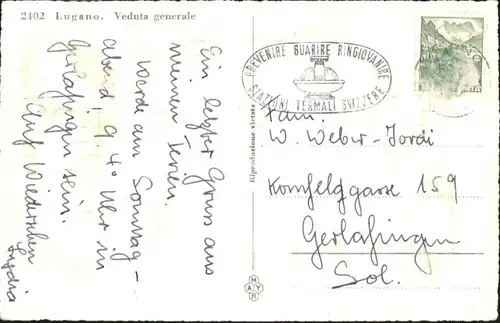 2402 Lugano. Veduta generale
Ein letzter Gruss aus
meinen Ferien.
Werde am Sonntag-
abend, 9.40 Uhr in
Gerlafingen sein.
Auf Wiedersehen
Lydia
Riproduzione vietata
MAYR
PREVENIRE GUARIRE RINGIOVANIRE
STAZIONI TERMALI SVIZZERE
Fam.
W. Weber-Jordi
Kornfeldgasse 159
Gerlafingen
Sol.